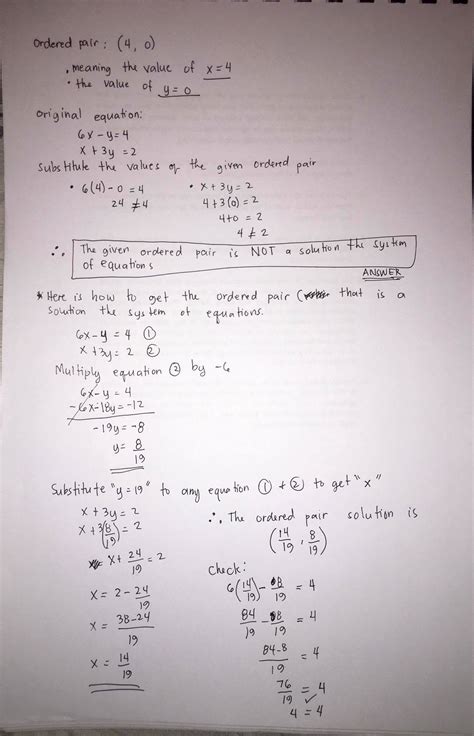 Ordered pair : (4, 0)
• meaning the value of x = 4
• the value of y = 0
original equation:
6x - y = 4
x + 3y = 2
Substitute the values of the given ordered pair
• 6(4) - 0 = 4
24 ≠ 4
• x + 3y = 2
4 + 3(0) = 2
4 + 0 = 2
4 ≠ 2
∴ The given ordered pair is NOT a solution the system
of equations
ANSWER
* Here is how to get the ordered pair ( that is a
solution the system of equations.
6x - y = 4 ①
x + 3y = 2 ②
Multiply equation ② by -6
6x - y = 4
-6x - 18y = -12
-19y = -8
y = 8/19
Substitute "y = 19" to any equation ① & ② to get "x"
x + 3y = 2
x + 3(8/19) = 2
x + 24/19 = 2
x = 2 - 24/19
x = 38-24/19
x = 14/19
∴ The ordered pair solution is
(14/19, 8/19)
Check:
6(14/19) - 8/19 = 4
84/19 - 8/19 = 4
84-8/19 = 4
76/19 = 4 ✓
4 = 4